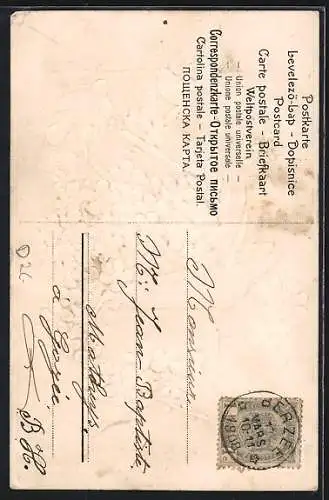 Postkarte
Levelező-Lap - Dopisnice
Postcard
Carte postale - Briefkaart
Weltpostverein
— Union postale universelle —
— Unione postale universale —
Correspondenzkarte - Открытое письмо
Cartolina postale - Tarjeta Postal.
ПОЩЕНСКА КАРТА.
Monsieur
Mr Jean-Baptiste
Mathys
à
D26
GERZEE
MARS